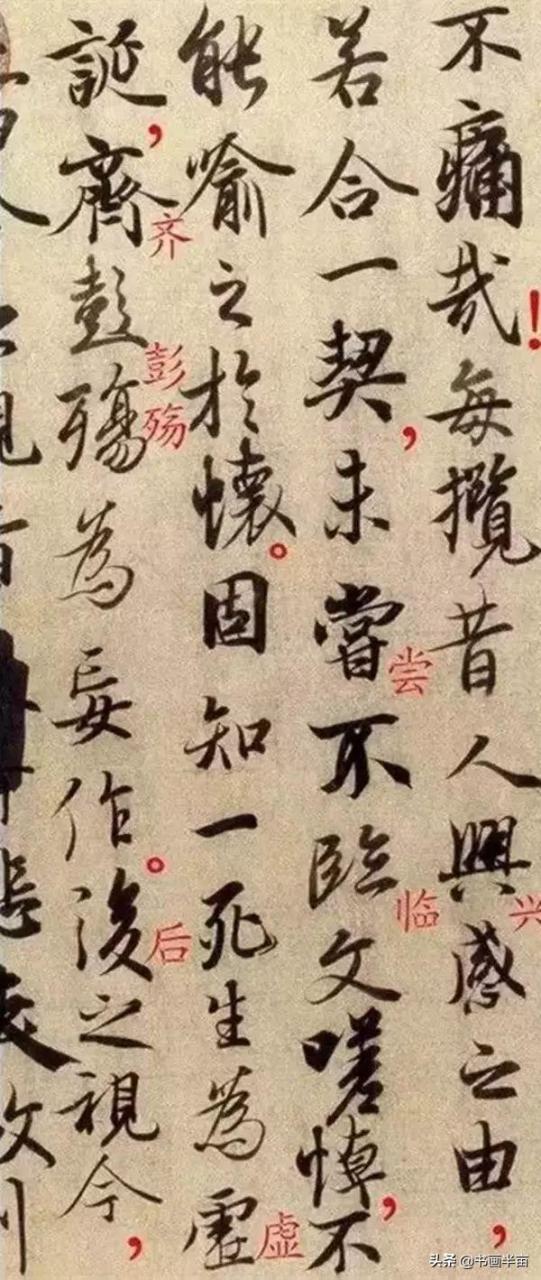 不痛哉！每攬昔人興感之由，
兴
若合一契，未嘗不臨文嗟悼，不
尝
临
能喻之於懷。固知一死生為虛
虚
誕，齊彭殤為妄作。後之視今，
齐
彭
殇
后
头条 @书画半亩